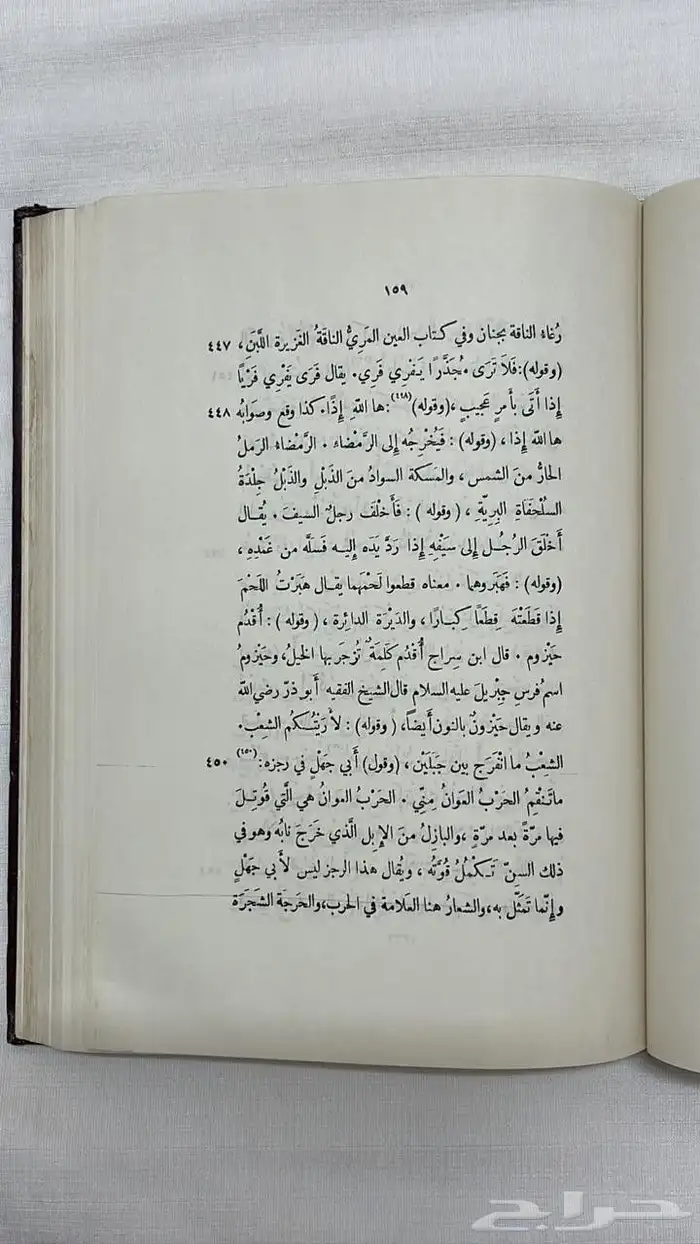 ١٥٩
رُغاء الناقة بجنان وفي كتاب العين المَرِيُّ الناقَةُ الغَزيرة اللَّبَنِ، ٤٤٧
(وقوله): فَلَا تَرَى مُجَذَّرًا يَفري فَرِي. يقال فَرَى يَفْرِي فَرْيًا
إذا أَتَى بأَمرٍ عَجيبٍ، (وقوله)(٤٤٨): ها اللهِ إِذًا. كذا وقع وصَوابُه ٤٤٨
ها اللهِ إذا، (وقوله): فَيُخْرِجُه إلى الرَّمْضاء. الرَّمْضاء الرَملُ
الحارُّ منَ الشمس، والمَسَكة السوادُ منَ الذَبْلِ والذَبْلُ جِلْدَةُ
السُلْحَفَاةِ البِرِيَّةِ، (وقوله): فأَخْلَفَ رجلٌ السيفَ. يُقال
أَخْلَقَ الرَّجُل إلى سَيْفِهِ إذا رَدَّ يَدَه إليه فَسَلَّه من غَمْدِهِ،
(وقوله): فَهَبَروهما. معناه قطعوا لَحْمَهما يقال هَبَرْتُ اللحْمَ
إذا قَطَعْتَهَ قِطَعًا كِبارًا، والدَيْرَة الدائرة، (وقوله): أُقْدُم
حَيْزوم. قال ابن سِراج أُقْدُم كَلِمَةٌ تُزجَر بها الخيلُ، وحَيْزومُ
اسمُ فرسِ جِبْريلَ عليه السلام قال الشيخ الفقيه أبو ذرّ رضي الله
عنه ويقال حَيْزونٌ بالنون أيضًا، (وقوله): لأَرَيْتُكم الشِعْبَ.
الشِعْبُ ما انْفَرَج بين جَبَلَيْن، (وقول) أَبي جَهْلٍ في رجزه:(٤٥٠) ٤٥٠
ما تَنْقِمُ الحَرْبُ العَوانُ مِنّي. الحَرْبُ العوانُ هي الَّتي قُوتِلَ
فيها مرّةً بعد مرّةٍ، والبازِلُ منَ الإِبِلِ الَّذي خَرَجَ نابُه وهو في
ذلك السِنّ تَكْمُلُ قُوَّتُه، ويُقال هذا الرجز ليس لأَبي جَهْلٍ
وإِنَّما تَمَثَّل به، والشعارُ هنا العَلامة في الحرب، والحَرَجَة الشَجَرَة
حراج